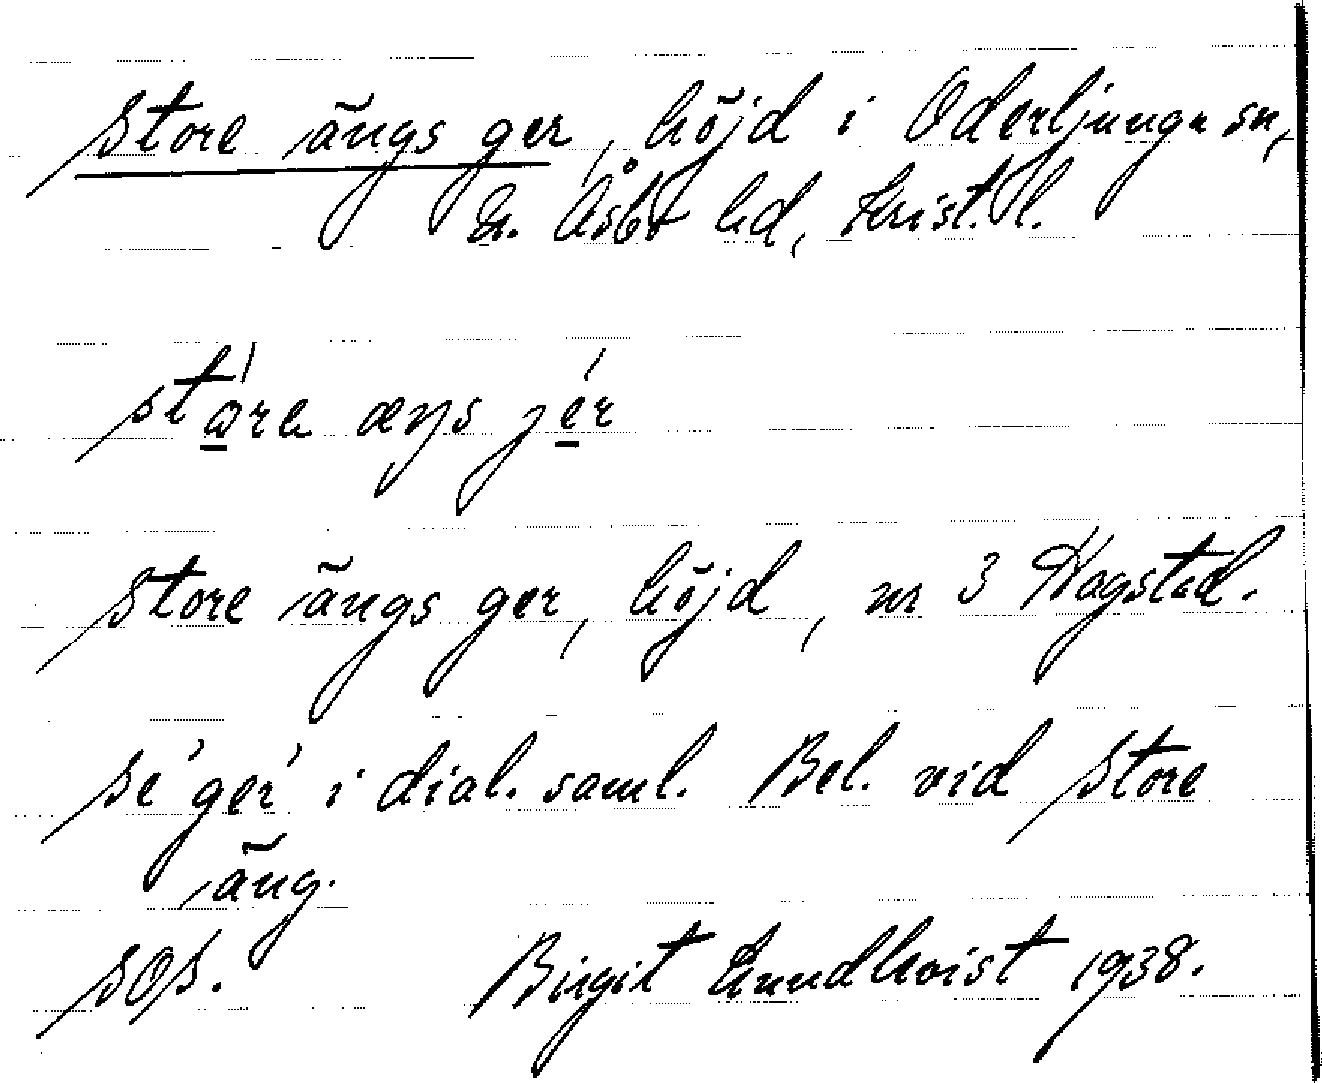 store ängs ger, höjd i Oderljunga sn,
N. Åsbo hd, Krist. l.
store ängs ger, höjd, nr 3 Hagstad.
se 'ger' i dial. saml. Bel. vid store
äng.
SOS. Birgit Lundkvist 1938.